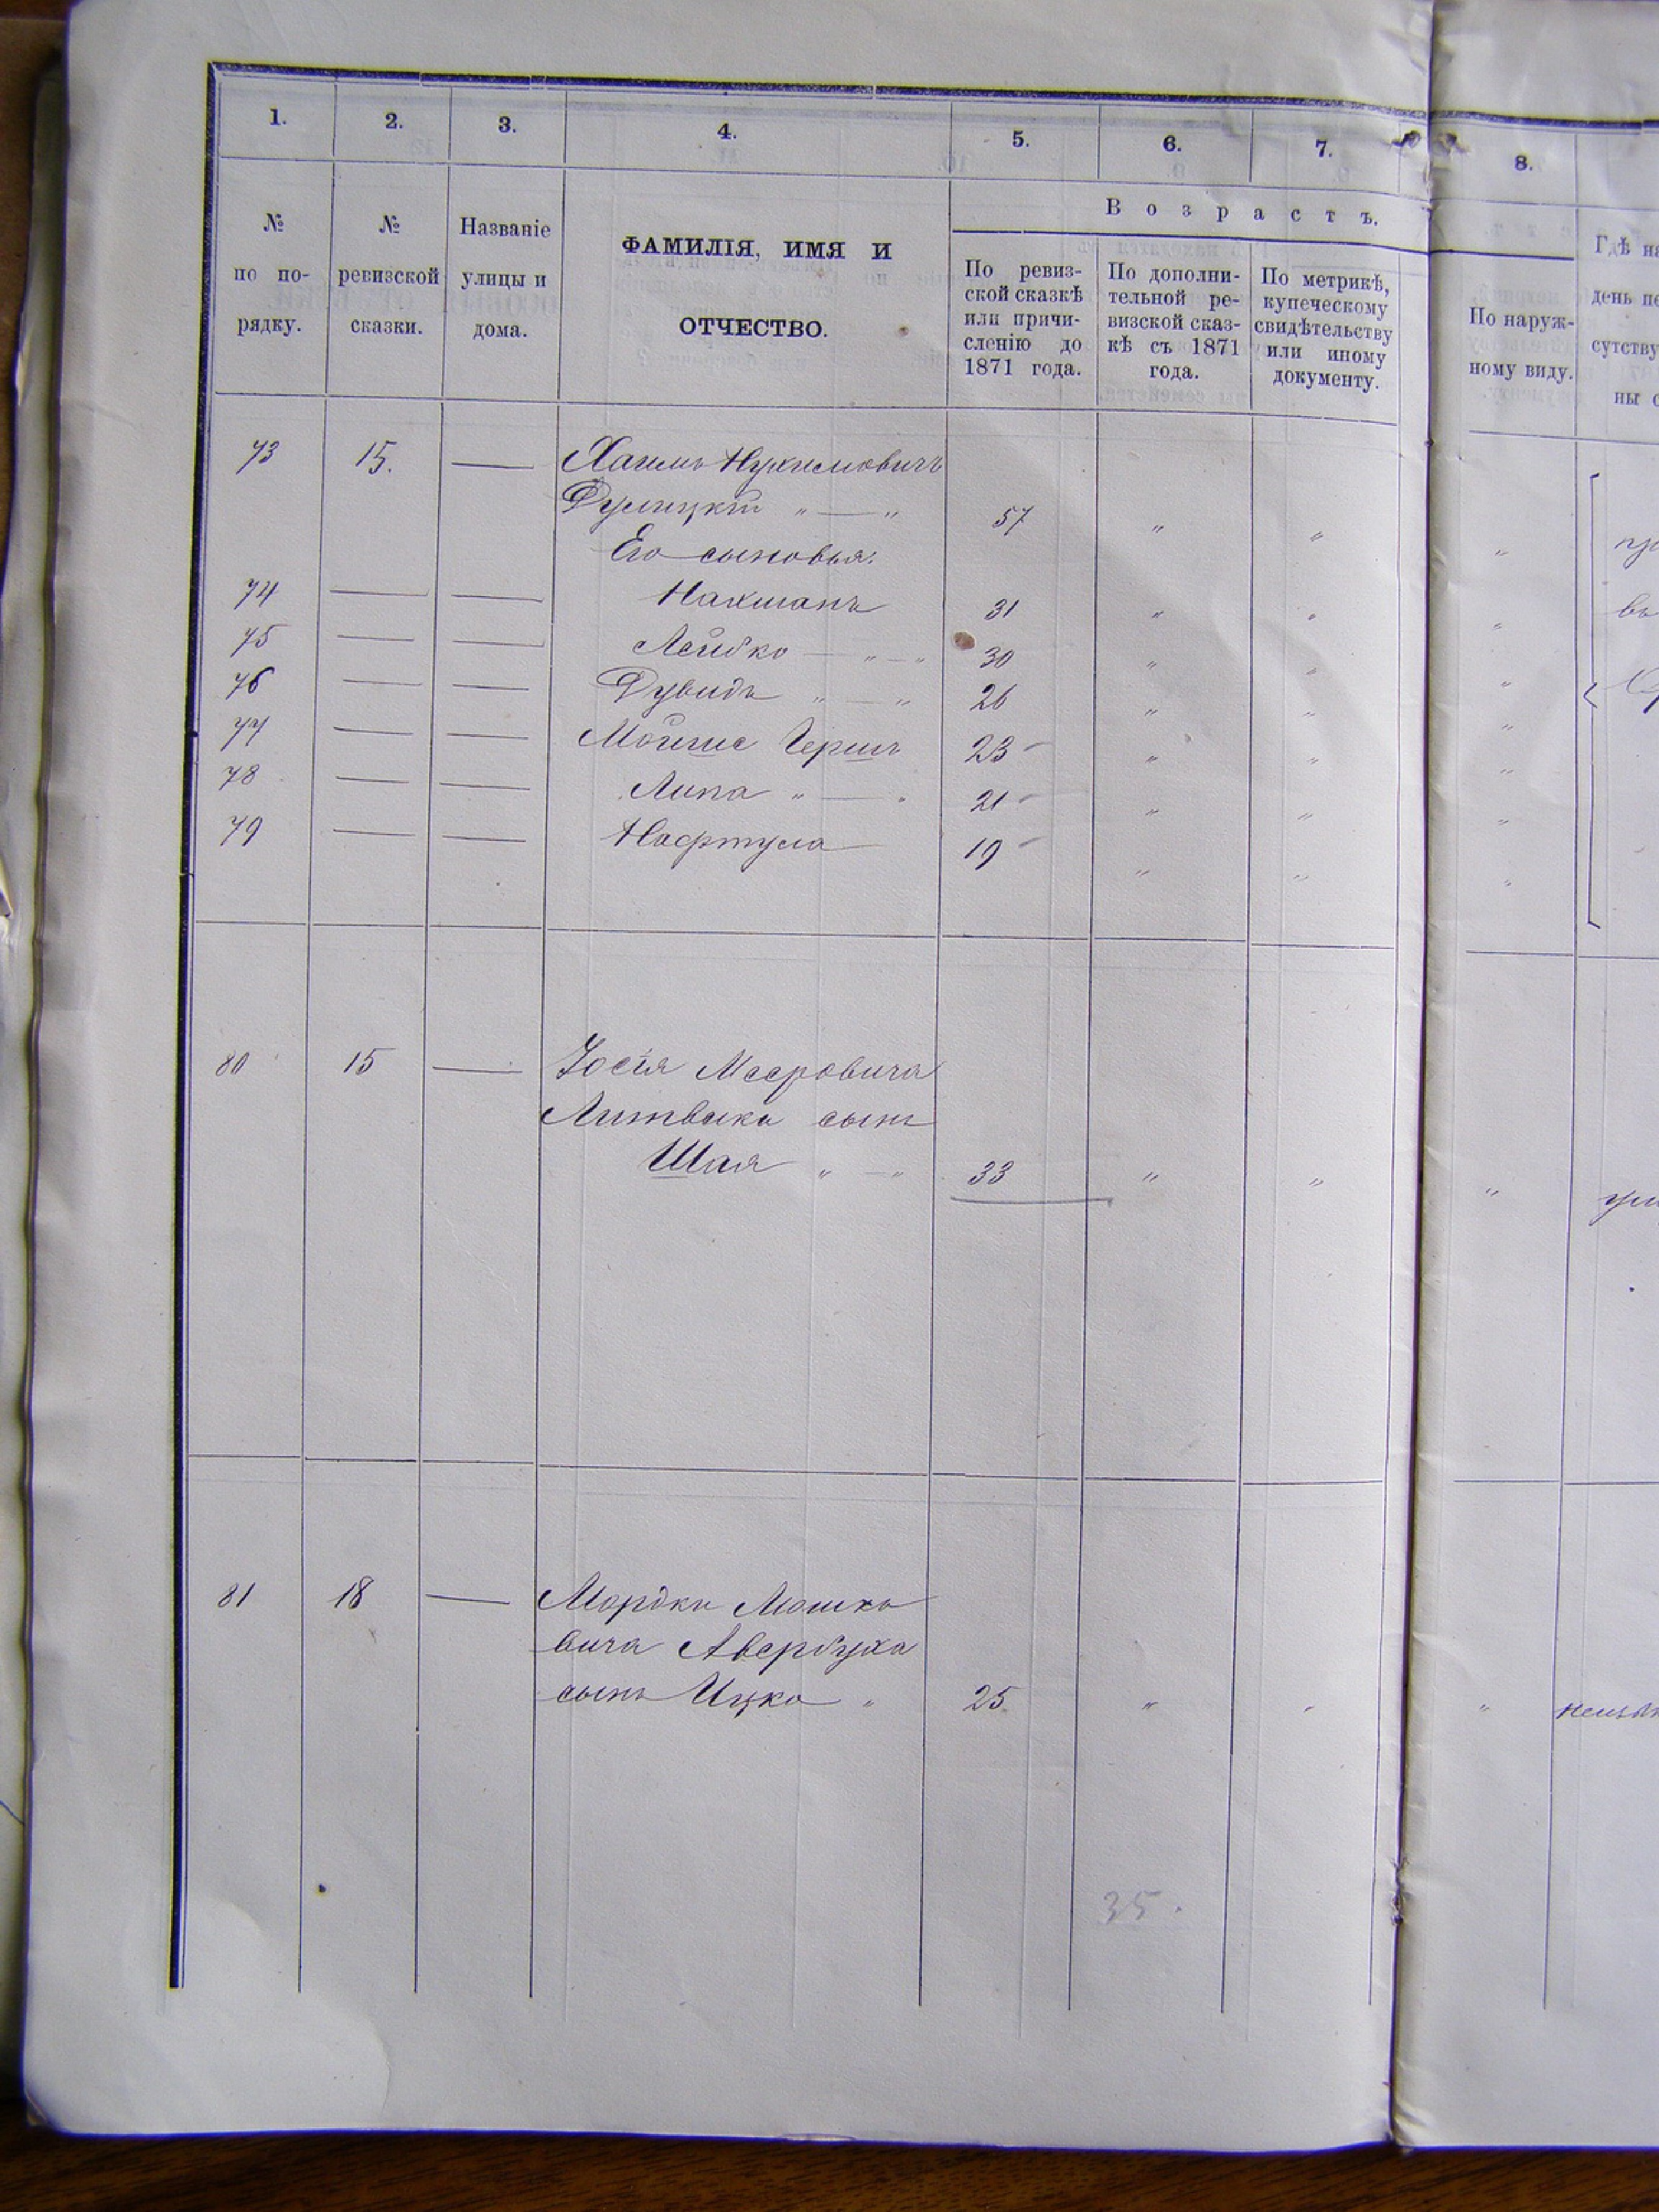 1. 2. 3. 4. 5. 6. 7. 8.
В о з р а с т ъ.
№ по по-рядку.
№ ревизской сказки.
Названіе улицы и дома.
ФАМИЛІЯ, ИМЯ И
ОТЧЕСТВО.
По ревиз-
ской сказкѣ
или причи-
сленію до
1871 года.
По дополни-
тельной ре-
визской сказ-
кѣ съ 1871
года.
По метрикѣ,
купеческому
свидѣтельству
или иному
документу.
По наруж-
ному виду.
Гдѣ на
день пе
сутству
ны с
73 15. — Хаимъ Нухимовичъ
„ — „ 57 „ „ „
Его сыновья:
74 — — Нахманъ 31 „ „ „
75 — — Лейбко — „ — „ 30 „ „ „
76 — — Дувидъ „ — „ 26 „ „ „
77 — — Мойше Гершъ 23 „ „ „
78 — — Липа „ — „ 21 „ „ „
79 — — Нафтула 19 „ „ „
80 15 — Іосія Мееровича
Литвака сынъ
Шая „ — „ 33 „ „ „
81 18 — Мордки Мошко
вича Авербуха
сынъ Ицко „ 25 „ „ „
35.